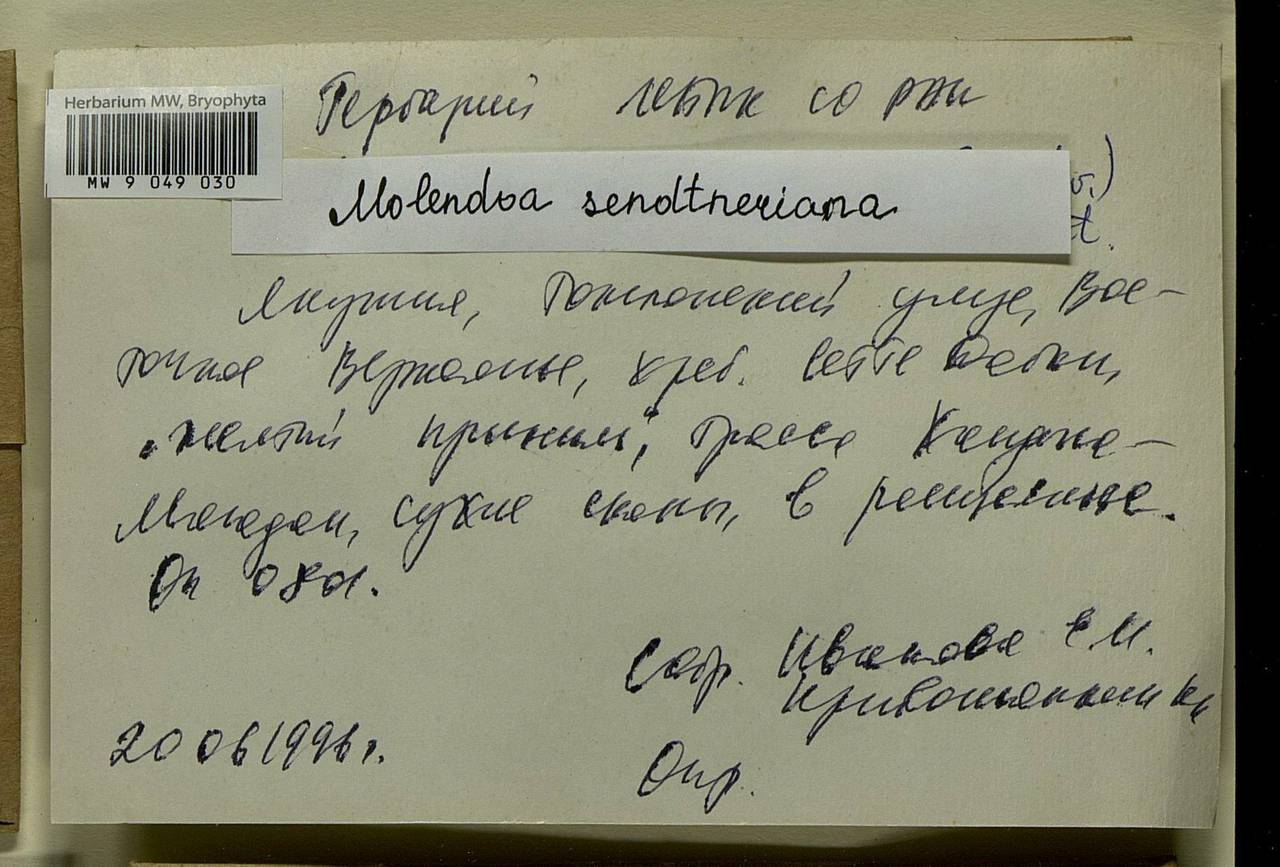 Herbarium MW, Bryophyta
MW 9 049 030
Гербарий со РАН
Molendoa sendtneriana
v.)
t.
Якутия, Томпонский улус, Вос-
точное Верхоянье, хреб. Сетте Дабан,
"желтый прижим", трасса Хандыга-
Магадан, сухие скалы, в расщелине.
Ок
Собр. Иванова Е.И.
Кривошапкин
20 06 1996 г.
Опр.